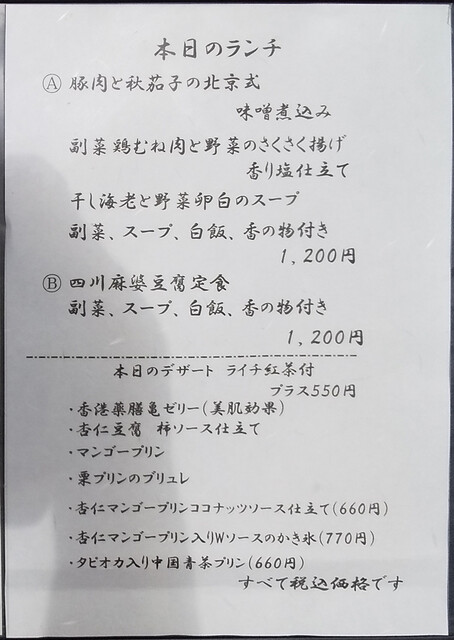 本日のランチ
Ⓐ 豚肉と秋茄子の北京式
味噌煮込み
副菜 鶏むね肉と野菜のさくさく揚げ
香り塩仕立て
干し海老と野菜卵白のスープ
副菜、スープ、白飯、香の物付き
1,200円
Ⓑ 四川麻婆豆腐定食
副菜、スープ、白飯、香の物付き
1,200円
本日のデザート ライチ紅茶付
プラス550円
・香港薬膳亀ゼリー(美肌効果)
・杏仁豆腐 柿ソース仕立て
・マンゴープリン
・栗プリンのブリュレ
・杏仁マンゴープリンココナッツソース仕立て(660円)
・杏仁マンゴープリン入りWソースのかき氷(770円)
・タピオカ入り中国青茶プリン(660円)
すべて税込価格です